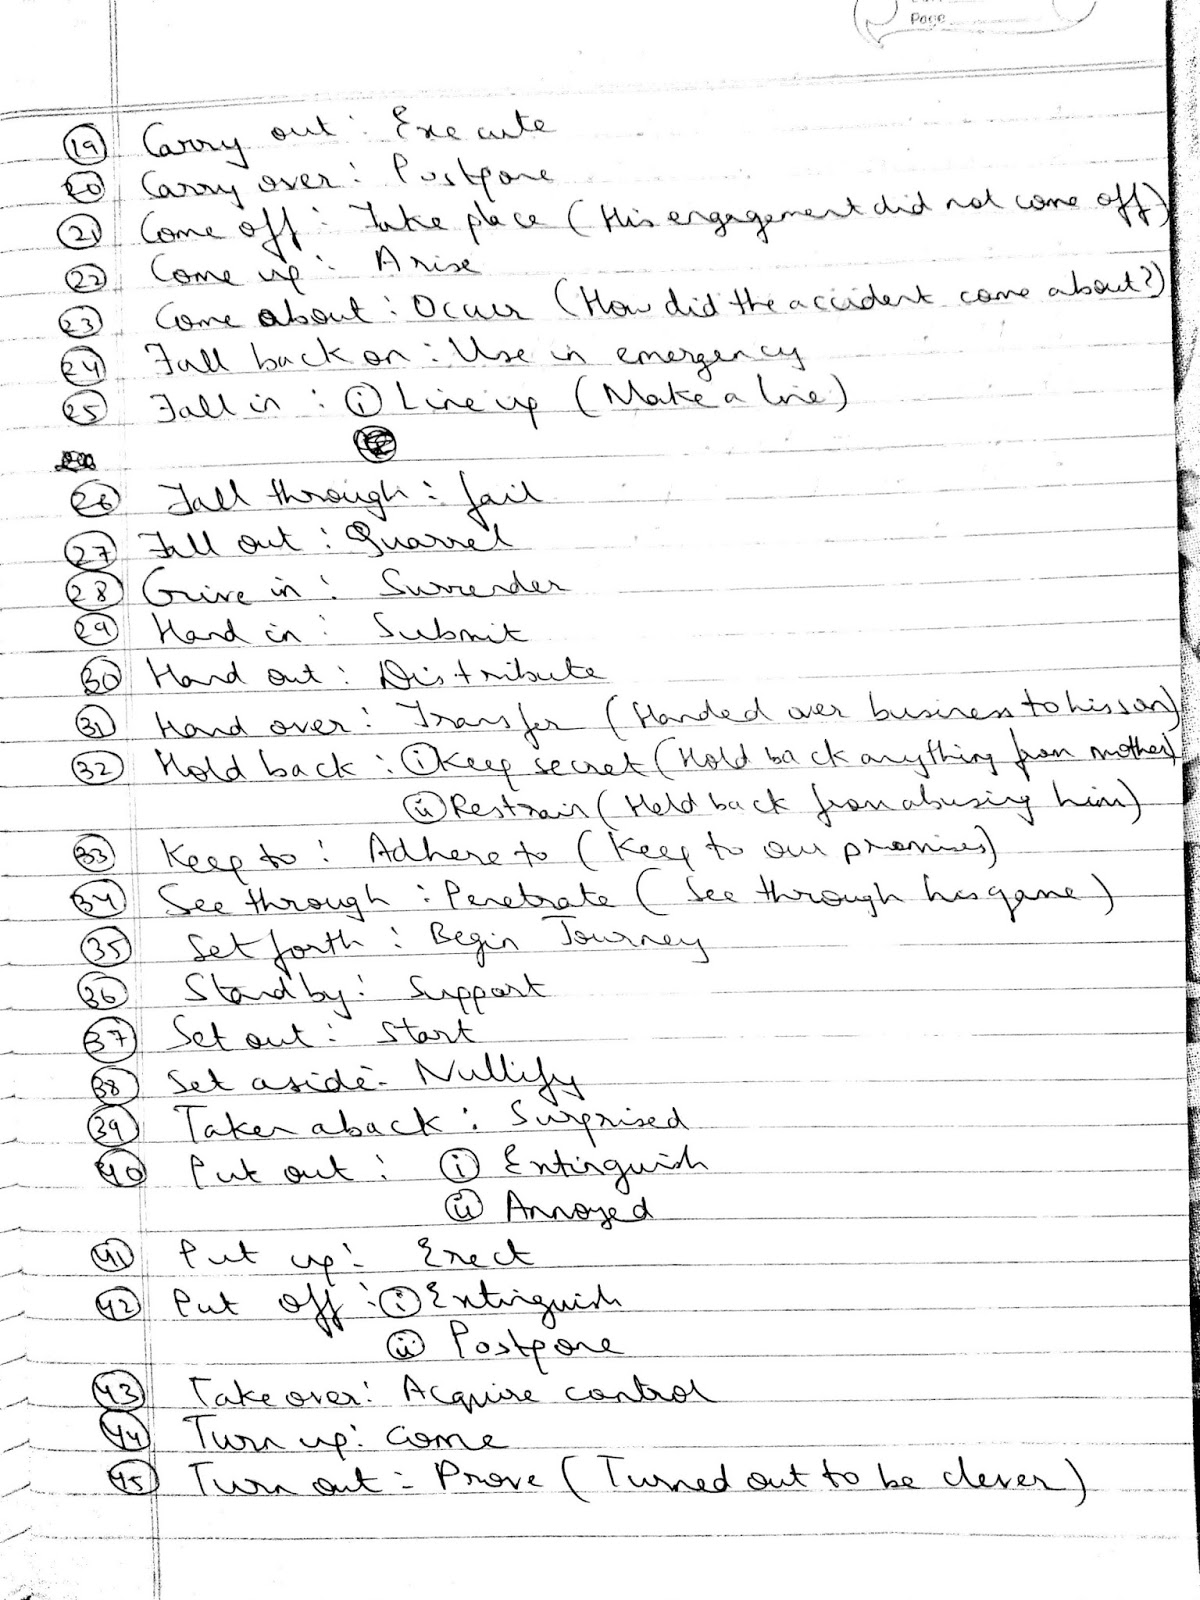 Page
19 Carry out : Execute
20 Carry over : Postpone
21 Come off : Take place (His engagement did not come off)
22 Come up : Arise
23 Come about : Occur (How did the accident come about?)
24 Fall back on : Use in emergency
25 Fall in : i Line up (Make a line)
26 Fall through : fail
27 Fall out : Quarrel
28 Give in : Surrender
29 Hand in : Submit
30 Hand out : Distribute
31 Hand over : Transfer (Handed over business to his son)
32 Hold back : i Keep secret (Hold back anything from mother)
ii Restrain (Held back from abusing him)
33 Keep to : Adhere to (Keep to our promises)
34 See through : Penetrate (See through his game)
35 Set forth : Begin Journey
36 Stand by : Support
37 Set out : Start
38 Set aside - Nullify
39 Taken aback : Surprised
40 Put out : i Extinguish
ii Annoyed
41 Put up : Erect
42 Put off : i Extinguish
ii Postpone
43 Take over : Acquire control
44 Turn up : Come
45 Turn out - Prove (Turned out to be clever)